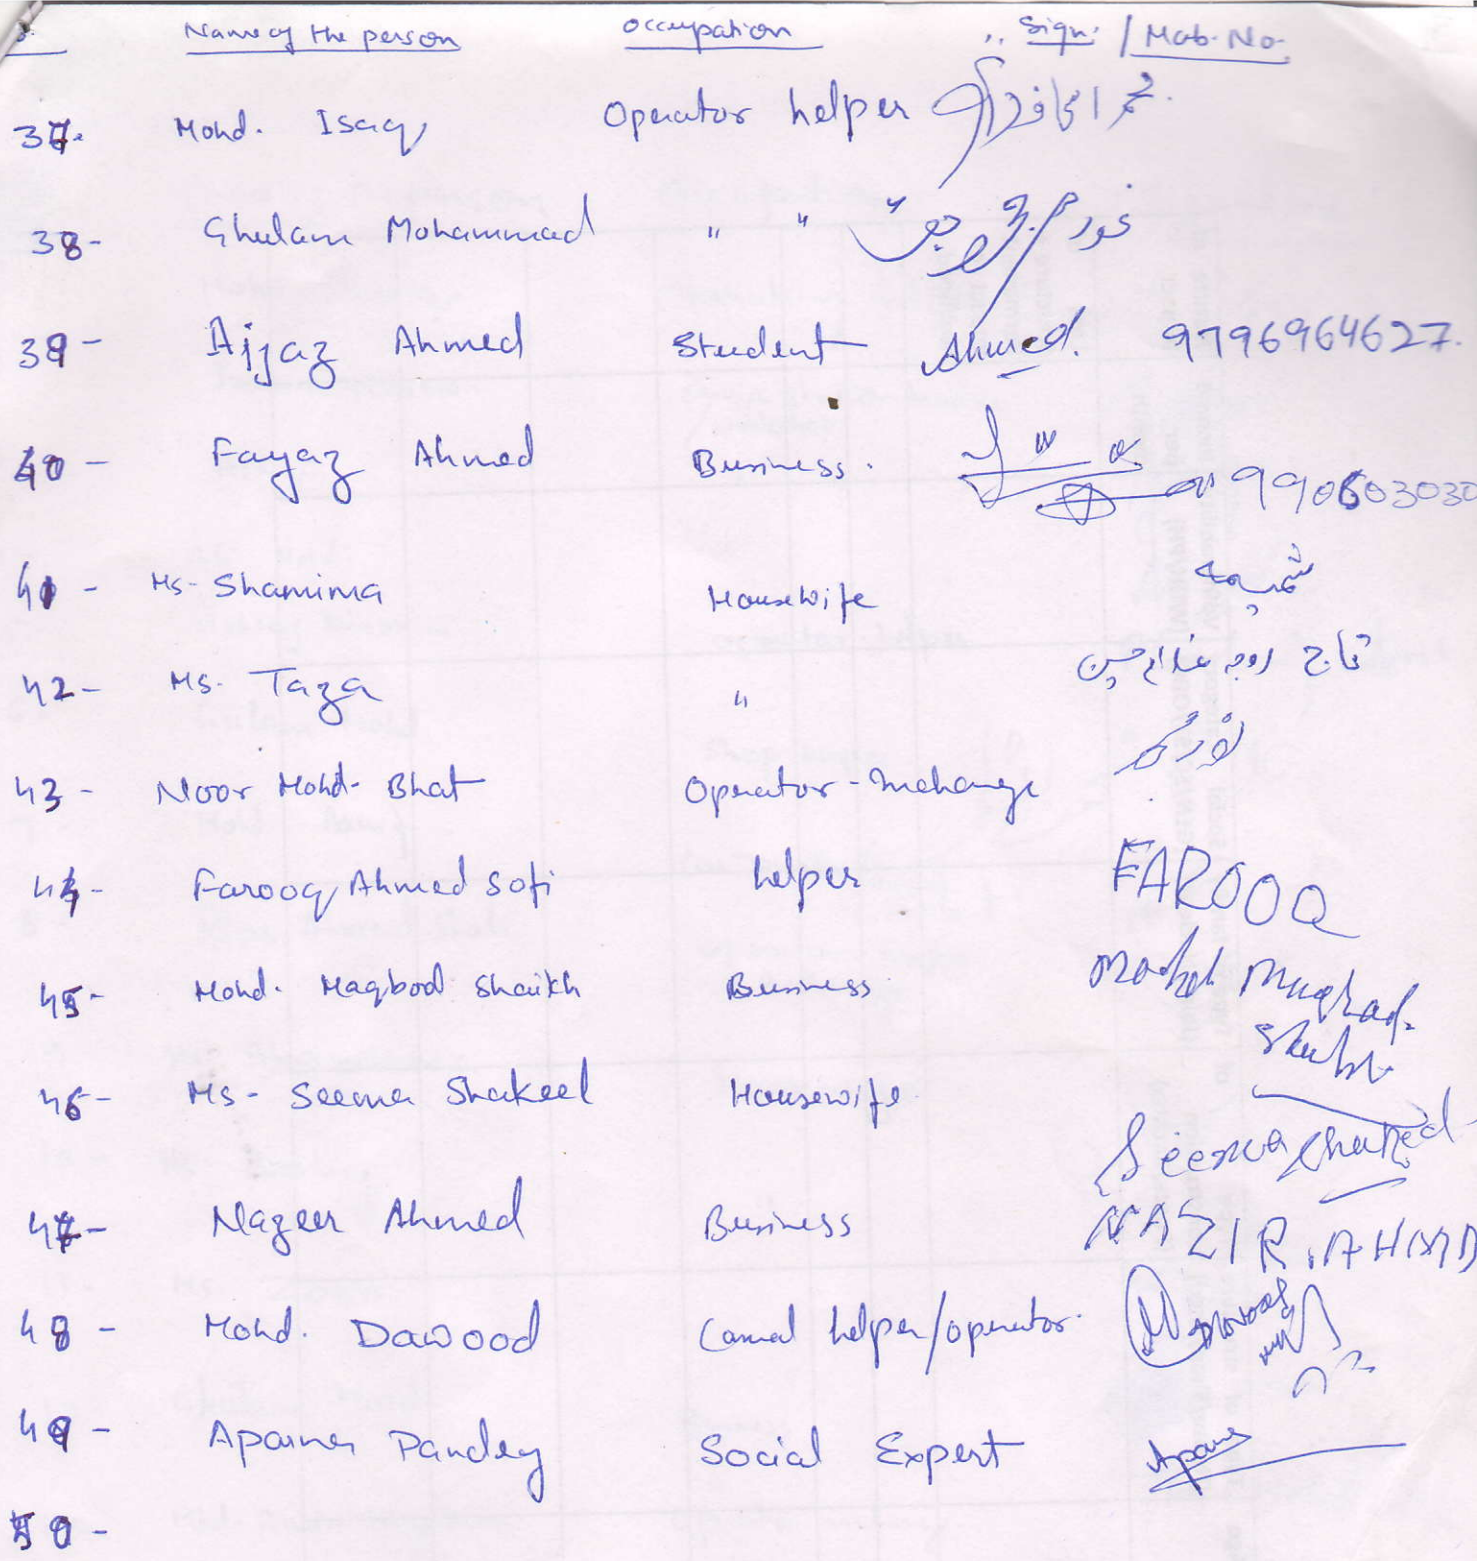 Name of the person Occupation Sign. / Mob. No.
37. Mohd. Isaq Operator helper
38- Ghulam Mohammad " " "
39- Aijaz Ahmed Student Ahmed. 9796964627.
40- Fayaz Ahmed Business.
41- Ms- Shamima Housewife شمیمہ
42- Ms. Taza " تاج زوجہ غلام حسن
43- Noor Mohd- Bhat Operator-Mehange نور محمد
44- Farooq Ahmed Sofi helper FAROOQ
45- Mohd. Maqbool Shaikh Business
46- Ms- Seema Shakeel Housewife. Seema Shakeel
47- Nazeer Ahmed Business NAZIR. AHMD
48- Mohd. Dawood Camal helper/operator.
49- Aparna Pandey Social Expert Aparna
50-